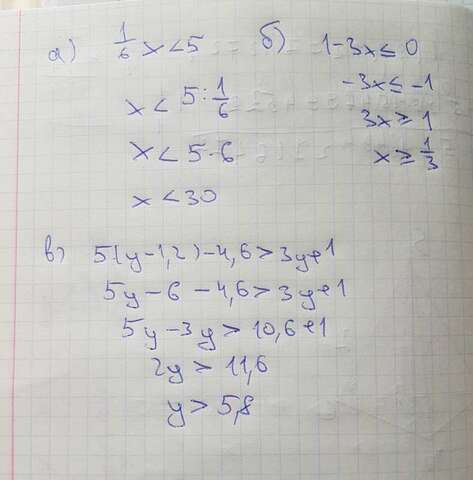 а) 1/6 x < 5
x < 5 : 1/6
x < 5 · 6
x < 30
б) 1 - 3x ≤ 0
-3x ≤ -1
3x ≥ 1
x ≥ 1/3
в) 5(y - 1,2) - 4,6 > 3y + 1
5y - 6 - 4,6 > 3y + 1
5y - 3y > 10,6 + 1
2y > 11,6
y > 5,8